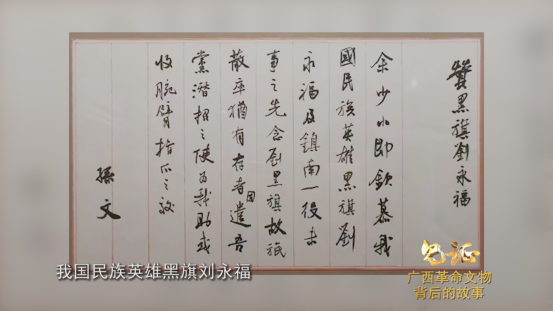 贊黑旗劉永福
余少小即欽慕我
國民族英雄黑旗劉
永福及鎮南一役未
事之先念黑旗故
散卒猶有存者因遣吾
黨潛招之使为我助或
收腕臂指爪之效
孫文
我国民族英雄黑旗刘永福
见证
广西革命文物
背后的故事